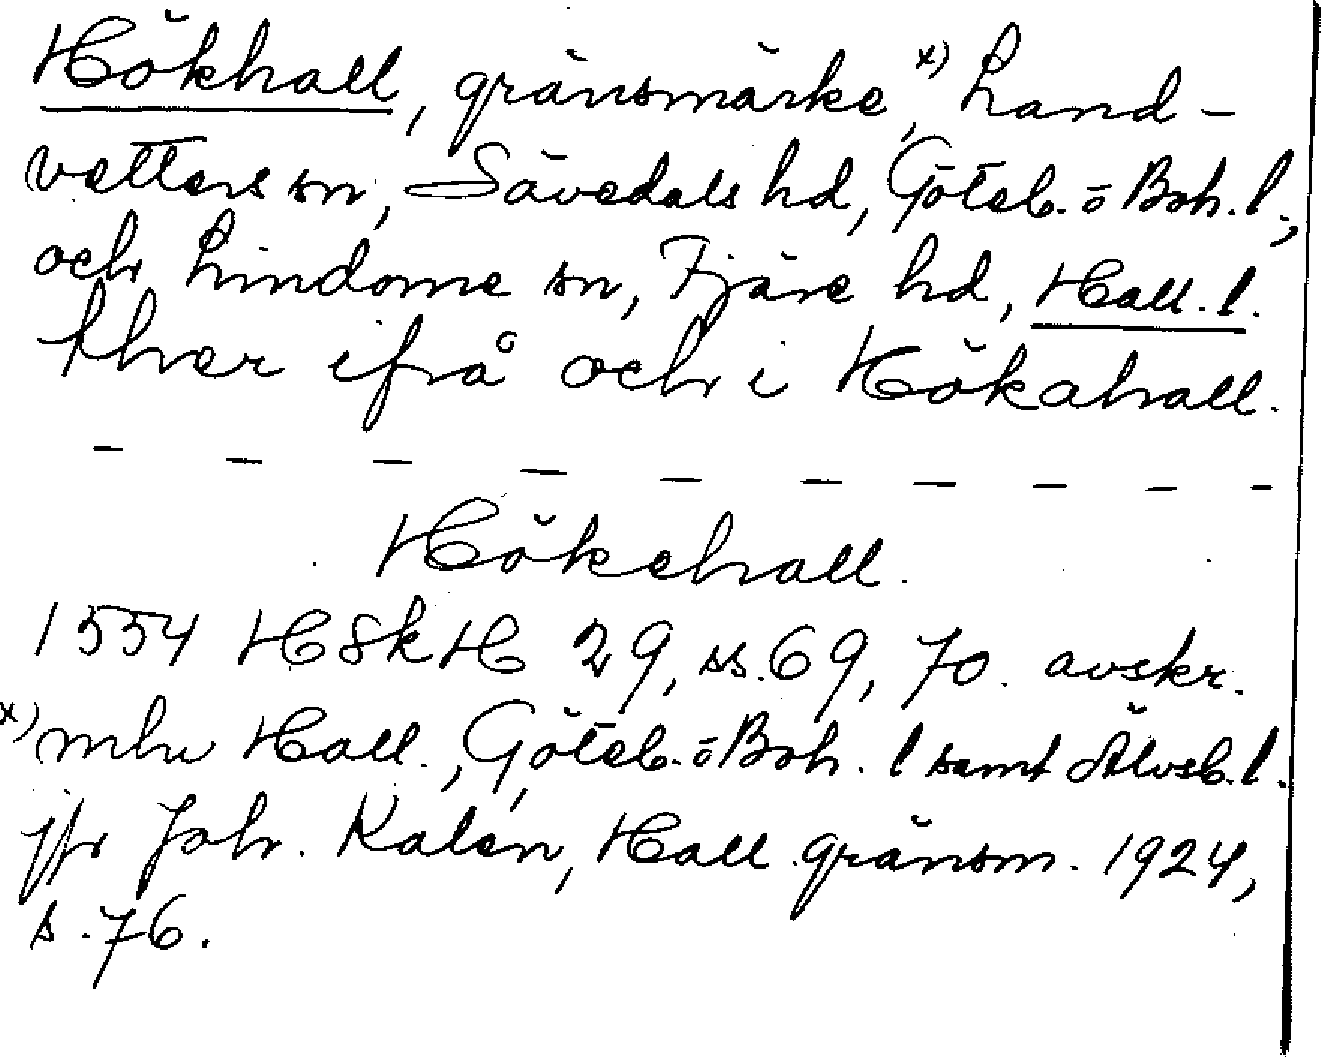 Hökhall, gränsmärke,x) Land-
vetters sn, Sävedals hd, Göteb. o Boh. l.,
och Lindome sn, Fjäre hd, Hall. l.
ther ifrå och i Hökahall.
– – – – – – – – – –
Hökehall.
1554 HSkH 29, ss. 69, 70. avskr.
x) mln Hall., Göteb. o Boh. l samt Älvsb. l.
jfr Joh. Kalén, Hall. gränsm. 1924,
s. 76.